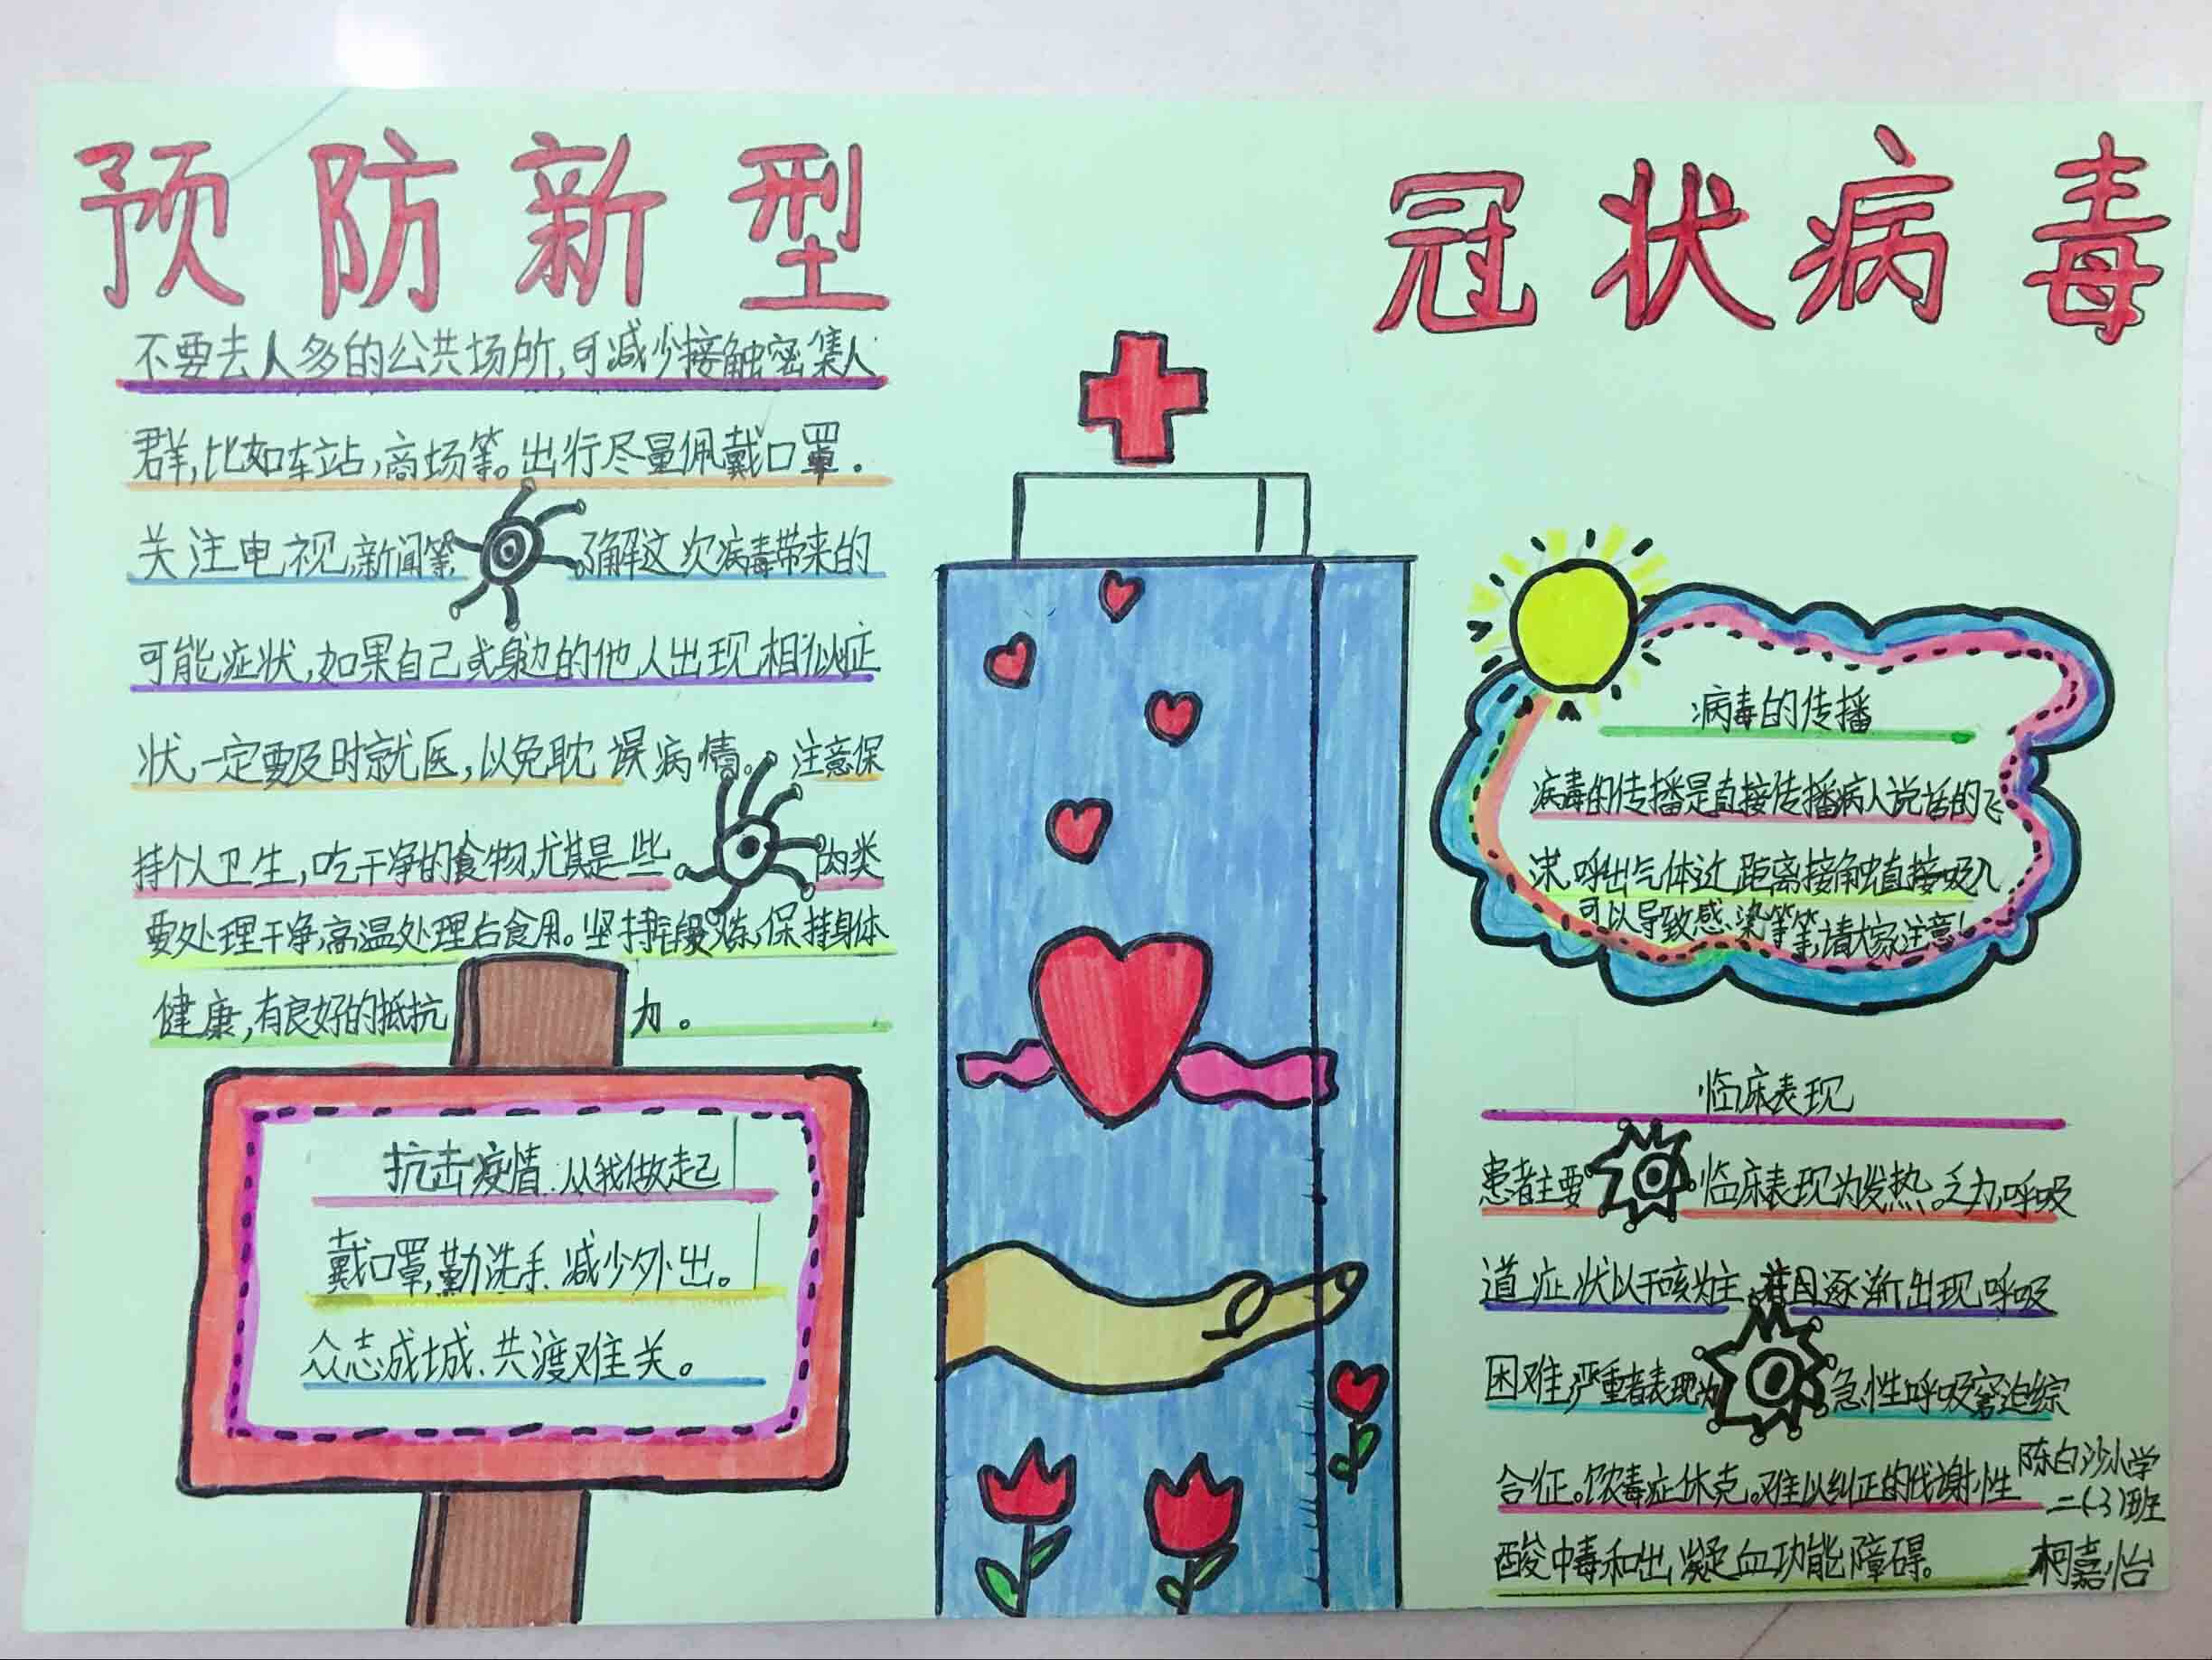 预防新型冠状病毒
不要去人多的公共场所,可减少接触密集人
群,比如车站,商场等。出行尽量佩戴口罩.
关注电视,新闻等,了解这次病毒带来的
可能症状,如果自己或身边的他人出现相似症
状,一定要及时就医,以免耽误病情。注意保
持个人卫生,吃干净的食物,尤其是一些肉类
要处理干净,高温处理后食用。坚持锻炼,保持身体
健康,有良好的抵抗力。
抗击疫情.从我做起
戴口罩,勤洗手.减少外出。
众志成城.共渡难关。
病毒的传播
病毒的传播是直接传播病人说话的飞
沫.呼出气体近距离接触直接吸入
可以导致感染等等,请大家注意!
临床表现
患者主要临床表现为发热.乏力,呼吸
道症状以干咳为主,并逐渐出现呼吸
困难,严重者表现为急性呼吸窘迫综
合征。脓毒症休克。难以纠正的代谢性
酸中毒和出凝血功能障碍。
陈白沙小学
二(3)班
柯嘉怡